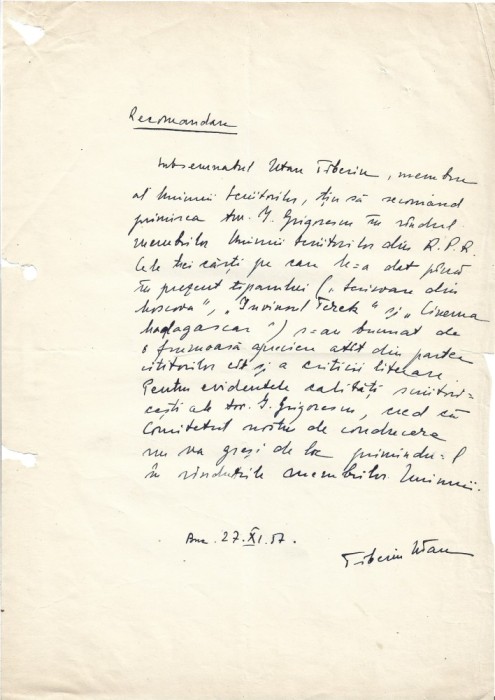 Recomandare
Subsemnatul Utan Tiberiu, membru
al Uniunii Scriitorilor, țin să recomand
primirea tov. I. Grigorescu în rîndul
membrilor Uniunii Scriitorilor din R.P.R.
Cele trei cărți pe care le-a dat pînă
în prezent tiparului („Scrisoare din
Moscova”, „Învinsul Terek” și „Cinema
Madagascar”) s-au bucurat de
o frumoasă apreciere atît din partea
cititorilor cît și a criticii literare.
Pentru evidentele calități scriitori-
cești ale tov. I. Grigorescu, cred că
Comitetul nostru de conducere
nu va greși de loc primindu-l
în rîndurile membrilor Uniunii.
Buc. 27.XI.57.
Tiberiu Utan